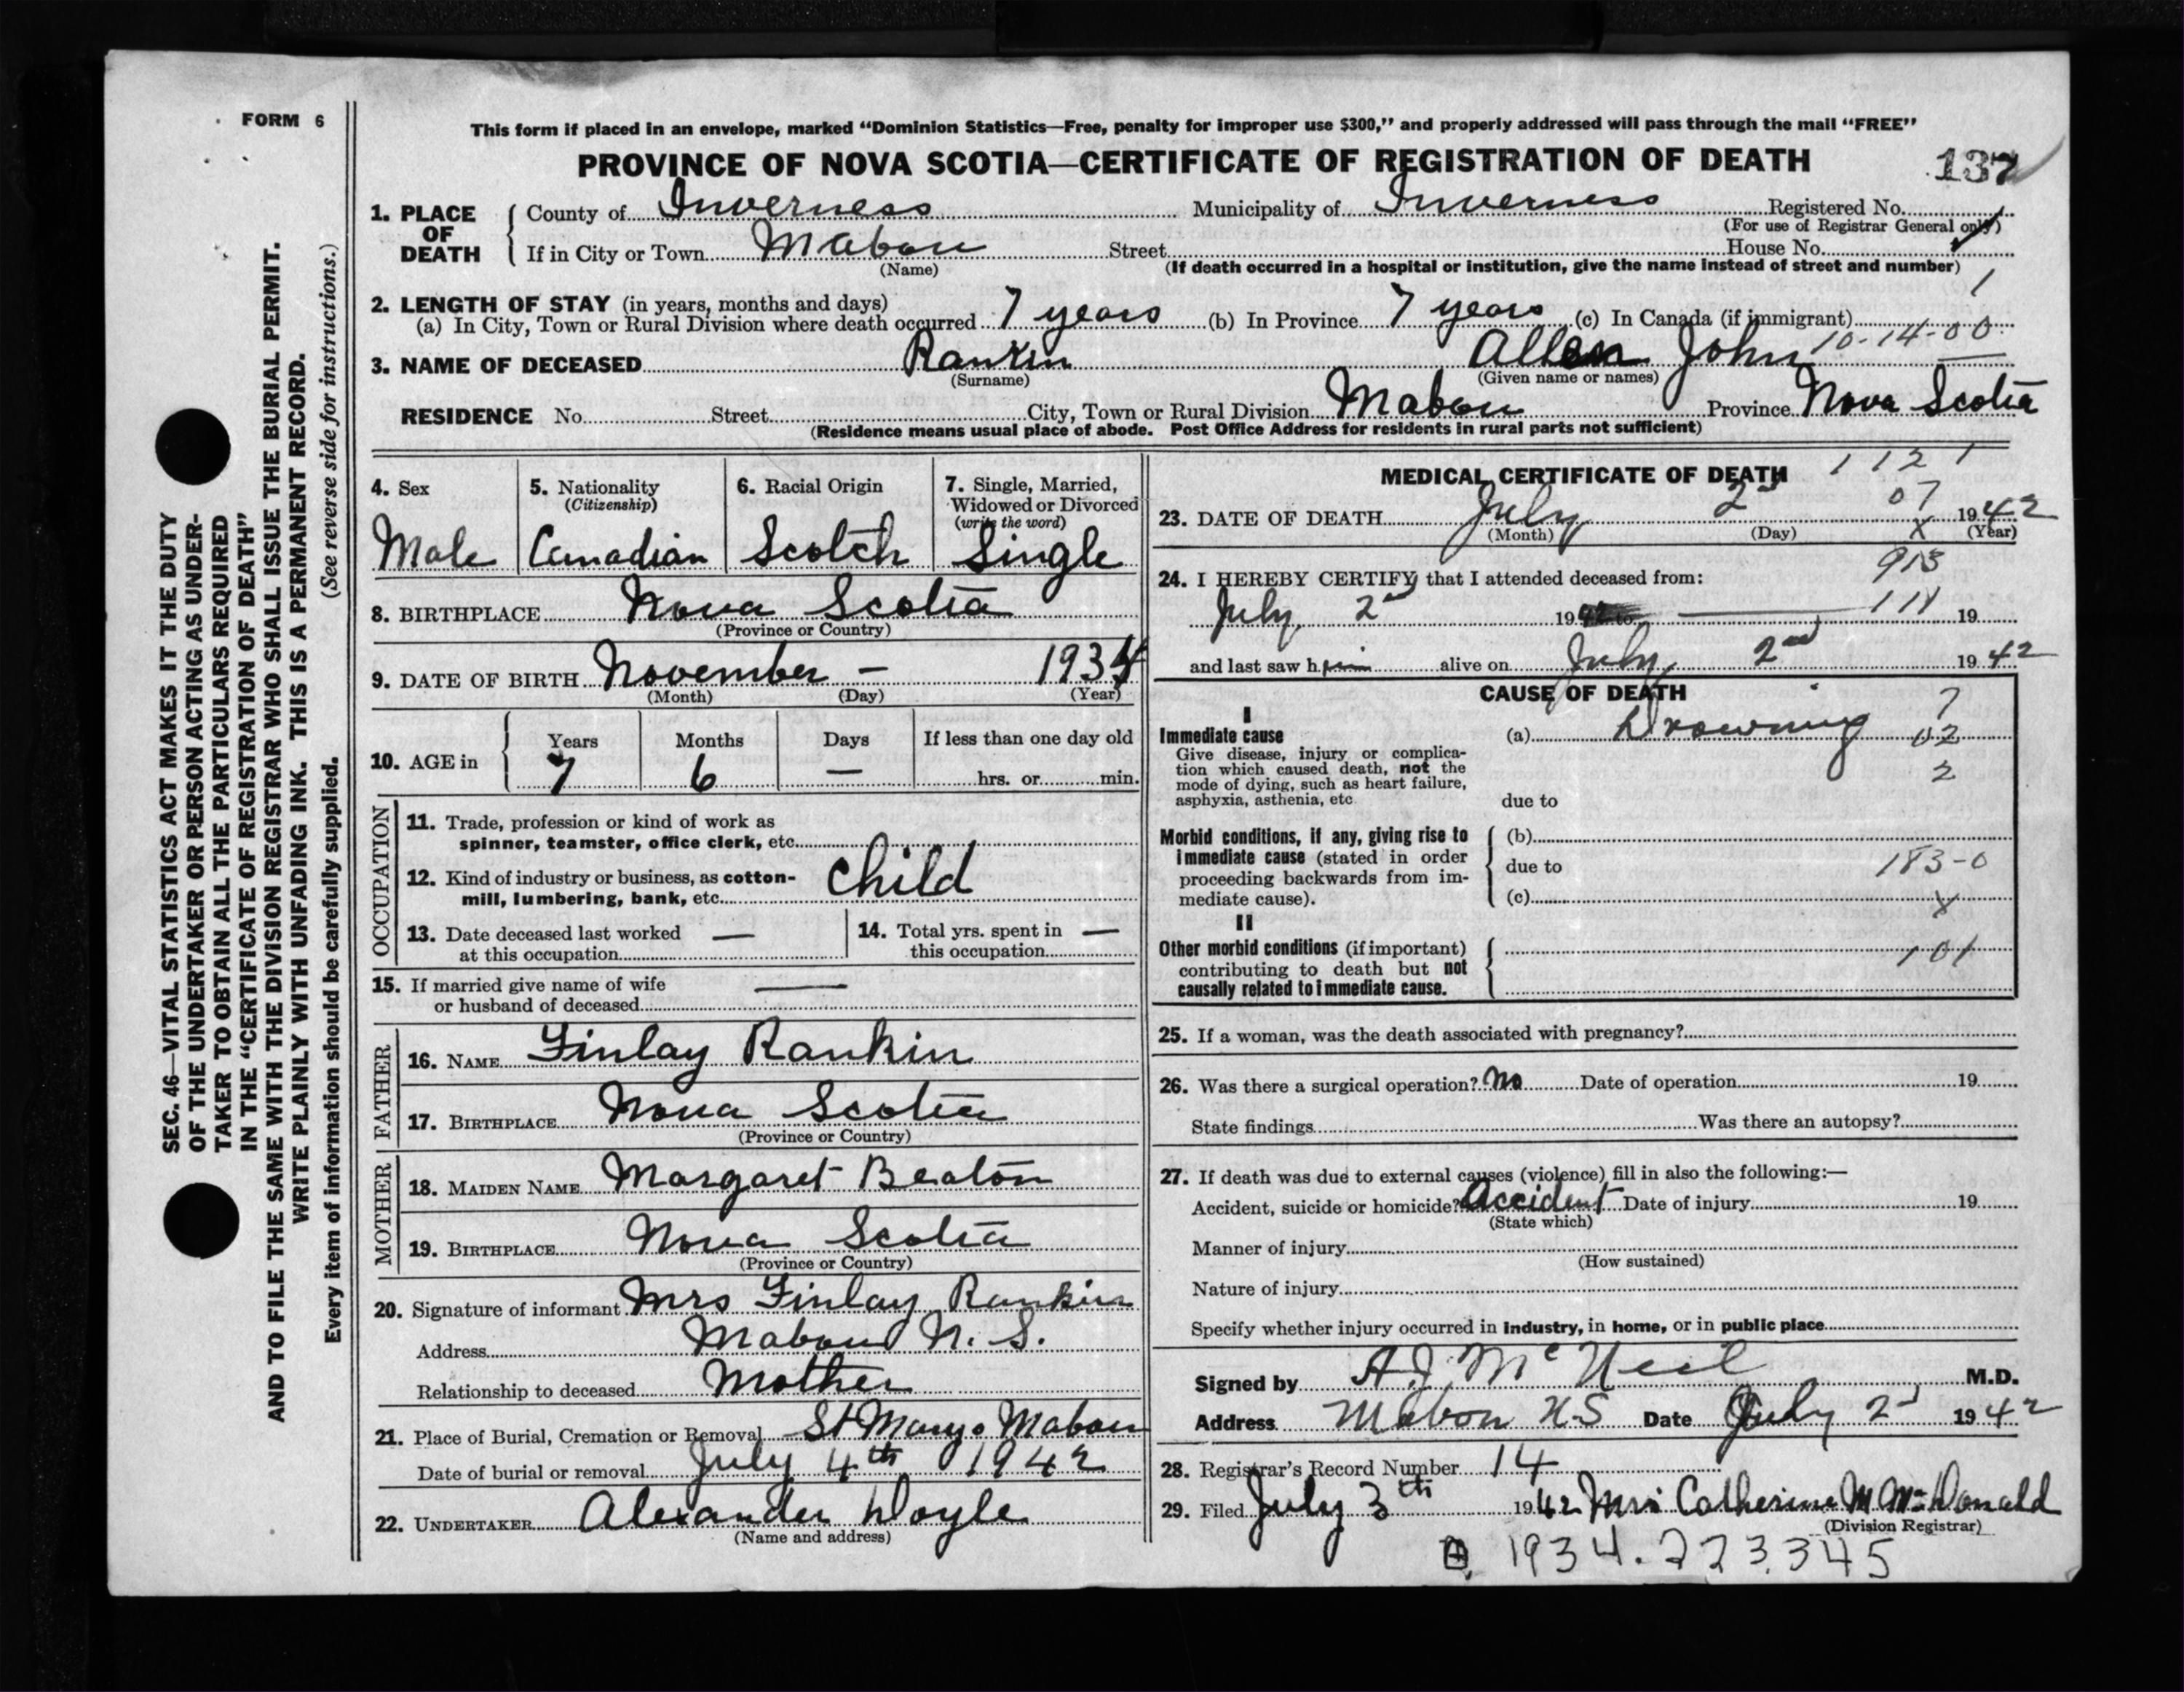 FORM 6
This form if placed in an envelope, marked "Dominion Statistics—Free, penalty for improper use $300," and properly addressed will pass through the mail "FREE"
PROVINCE OF NOVA SCOTIA—CERTIFICATE OF REGISTRATION OF DEATH 137
1. PLACE OF DEATH County of Inverness Municipality of Inverness Registered No.
(For use of Registrar General only)
If in City or Town Mabou Street House No.
(Name) (If death occurred in a hospital or institution, give the name instead of street and number)
1
2. LENGTH OF STAY (in years, months and days)
(a) In City, Town or Rural Division where death occurred 7 years (b) In Province 7 years (c) In Canada (if immigrant)
10-14-00
3. NAME OF DECEASED Rankin Allen John
(Surname) (Given name or names)
RESIDENCE No. Street City, Town or Rural Division Mabou Province Nova Scotia
(Residence means usual place of abode. Post Office Address for residents in rural parts not sufficient)
SEC. 46—VITAL STATISTICS ACT MAKES IT THE DUTY
OF THE UNDERTAKER OR PERSON ACTING AS UNDER-
TAKER TO OBTAIN ALL THE PARTICULARS REQUIRED
IN THE "CERTIFICATE OF REGISTRATION OF DEATH"
AND TO FILE THE SAME WITH THE DIVISION REGISTRAR WHO SHALL ISSUE THE BURIAL PERMIT.
WRITE PLAINLY WITH UNFADING INK. THIS IS A PERMANENT RECORD.
Every item of information should be carefully supplied. (See reverse side for instructions.)
4. Sex 5. Nationality 6. Racial Origin 7. Single, Married,
(Citizenship) Widowed or Divorced
(write the word)
Male Canadian Scotch Single
8. BIRTHPLACE Nova Scotia
(Province or Country)
9. DATE OF BIRTH November — 1934
(Month) (Day) (Year)
10. AGE in Years Months Days If less than one day old
7 6 — hrs. or min.
OCCUPATION
11. Trade, profession or kind of work as
spinner, teamster, office clerk, etc.
12. Kind of industry or business, as cotton-
mill, lumbering, bank, etc. Child
13. Date deceased last worked —
at this occupation
14. Total yrs. spent in —
this occupation
15. If married give name of wife —
or husband of deceased
FATHER
16. NAME Finlay Rankin
17. BIRTHPLACE Nova Scotia
(Province or Country)
MOTHER
18. MAIDEN NAME Margaret Beaton
19. BIRTHPLACE Nova Scotia
(Province or Country)
20. Signature of informant Mrs Finlay Rankin
Address Mabou N. S.
Relationship to deceased Mother
21. Place of Burial, Cremation or Removal St Marys Mabou
Date of burial or removal July 4th 1942
22. UNDERTAKER Alexander Doyle
(Name and address)
MEDICAL CERTIFICATE OF DEATH 1121
07
23. DATE OF DEATH July 2nd 1942
(Month) (Day) X (Year)
24. I HEREBY CERTIFY that I attended deceased from: 913
July 2nd 1942 to 111 19
and last saw him alive on July 2nd 1942
CAUSE OF DEATH
I
Immediate cause
Give disease, injury or complica-
tion which caused death, not the
mode of dying, such as heart failure,
asphyxia, asthenia, etc
(a) Drowning
7
02
2
due to
Morbid conditions, if any, giving rise to
immediate cause (stated in order
proceeding backwards from im-
mediate cause).
(b)
due to 183-0
(c) X
II
Other morbid conditions (if important)
contributing to death but not
causally related to immediate cause.
101
25. If a woman, was the death associated with pregnancy?
26. Was there a surgical operation? No Date of operation 19
State findings Was there an autopsy?
27. If death was due to external causes (violence) fill in also the following:—
Accident, suicide or homicide? Accident Date of injury 19
(State which)
Manner of injury
(How sustained)
Nature of injury
Specify whether injury occurred in industry, in home, or in public place
Signed by A. J. McNeil M.D.
Address Mabou N.S Date July 2nd 1942
28. Registrar's Record Number 14
29. Filed July 3th 1942 Mrs Catherine M McDonald
(Division Registrar)
1934. 223345